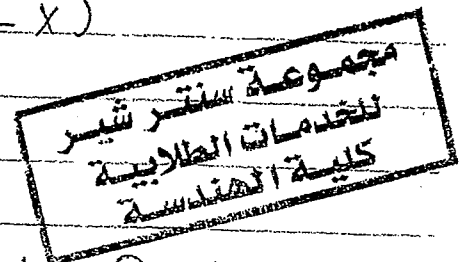 - X)
مجموعة سنتر شير
للخدمات الطلابية
كلية الهندسة